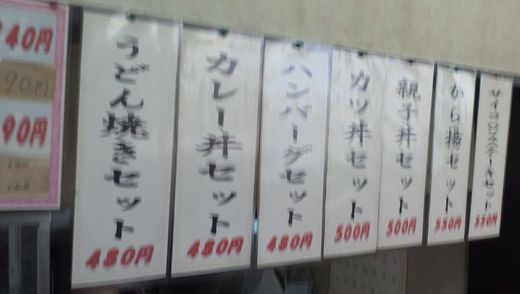 うどん焼きセット
480円
カレー丼セット
480円
ハンバーグセット
480円
カツ丼セット
500円
親子丼セット
500円
から揚セット
550円
サイコロステーキセット
550円
40円
90円
90円